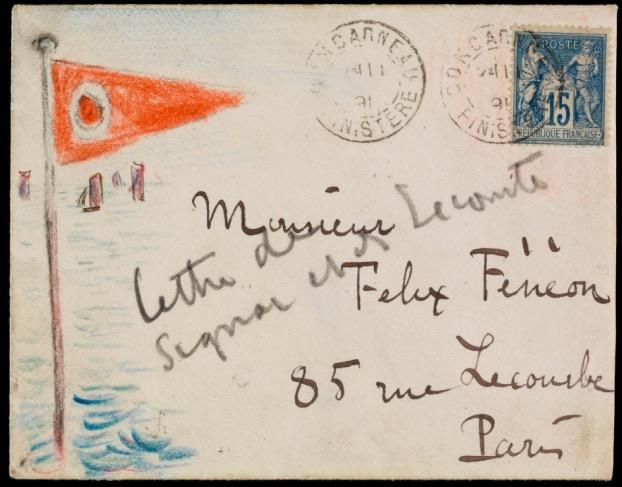 CONCARNEAU
91
FINISTERE
CONCARNEAU
91
FINISTERE
POSTE
15
REPUBLIQUE FRANÇAISE
Monsieur
Felix Fénéon
85 rue Lecourbe
Paris
lettre de
Signac chez Lecomte